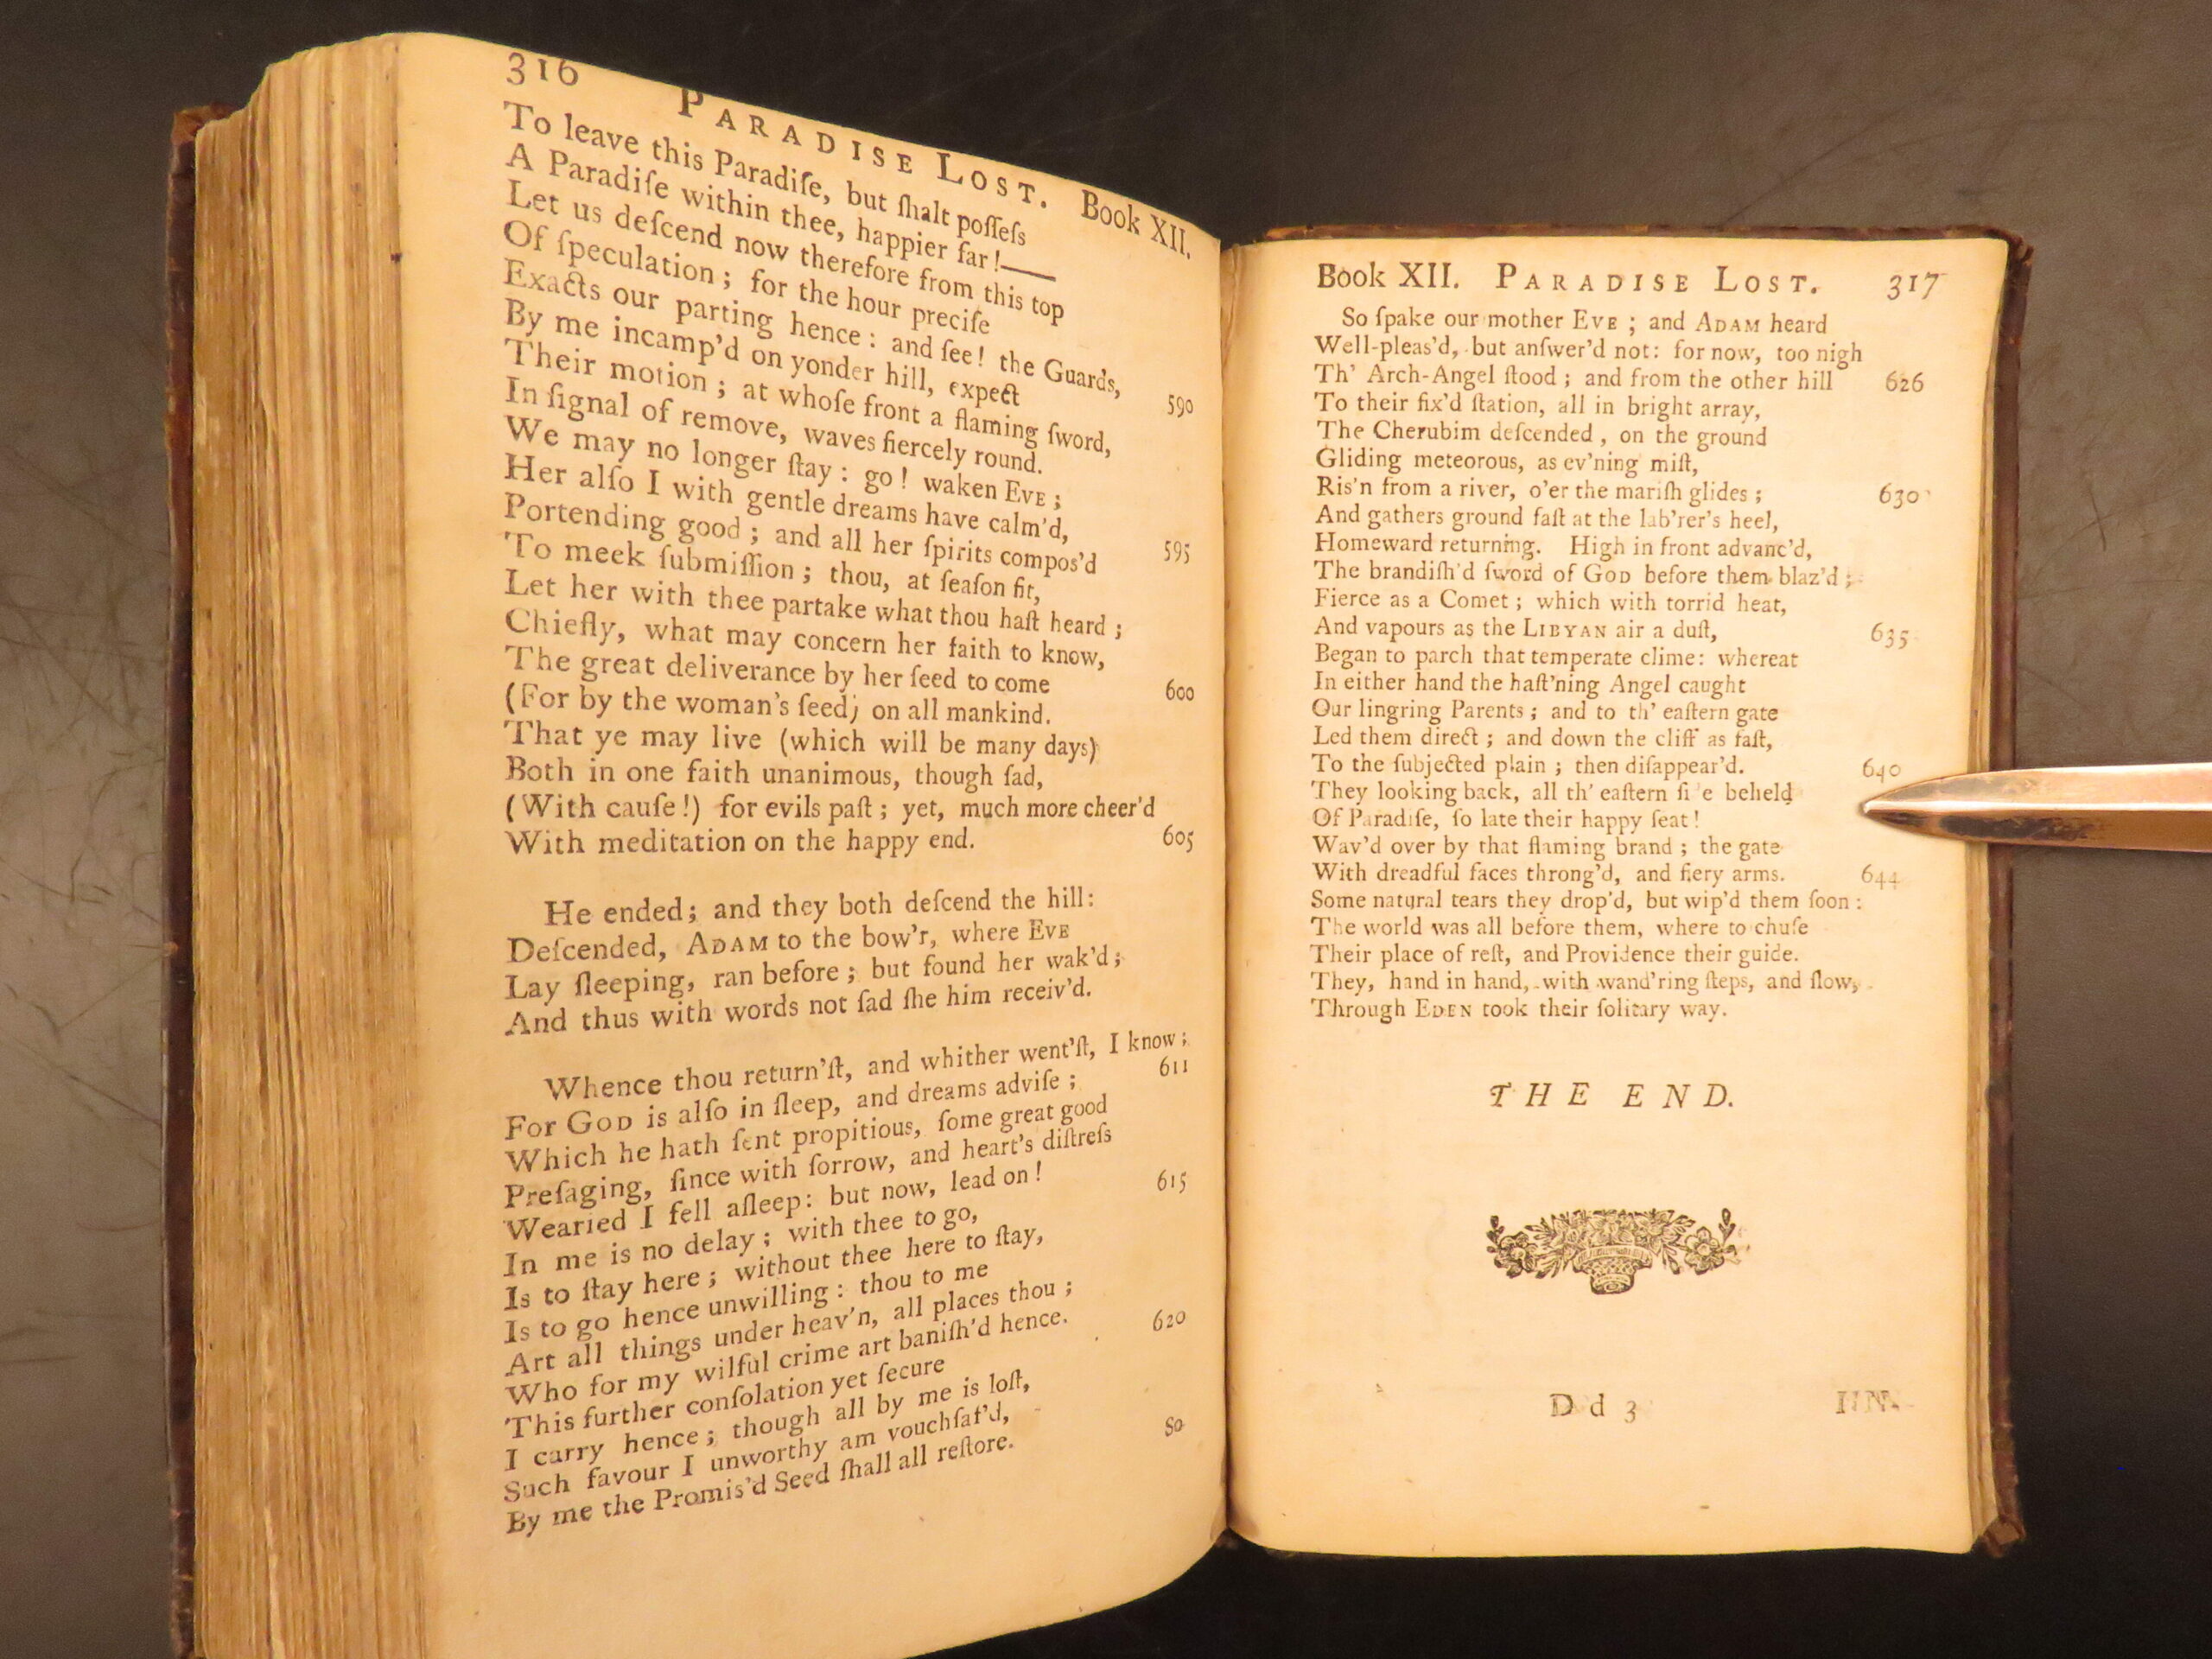 316 PARADISE LOST. Book XII.
To leave this Paradiſe, but ſhalt poſſeſs
A Paradiſe within thee, happier far!——
Let us deſcend now therefore from this top
Of ſpeculation; for the hour preciſe
Exacts our parting hence: and ſee! the Guards,
By me incamp'd on yonder hill, expect 590
Their motion; at whoſe front a flaming ſword,
In ſignal of remove, waves fiercely round.
We may no longer ſtay: go! waken EVE;
Her alſo I with gentle dreams have calm'd,
Portending good; and all her ſpirits compos'd 595
To meek ſubmiſſion; thou, at ſeaſon fit,
Let her with thee partake what thou haſt heard;
Chiefly, what may concern her faith to know,
The great deliverance by her ſeed to come
(For by the woman's ſeed) on all mankind. 600
That ye may live (which will be many days)
Both in one faith unanimous, though ſad,
(With cauſe!) for evils paſt; yet, much more cheer'd
With meditation on the happy end. 605
He ended; and they both deſcend the hill:
Deſcended, ADAM to the bow'r, where EVE
Lay ſleeping, ran before; but found her wak'd;
And thus with words not ſad ſhe him receiv'd.
Whence thou return'ſt, and whither went'ſt, I know;
For GOD is alſo in ſleep, and dreams adviſe; 611
Which he hath ſent propitious, ſome great good
Preſaging, ſince with ſorrow, and heart's diſtreſs
Wearied I fell aſleep: but now, lead on!
In me is no delay; with thee to go, 615
Is to ſtay here; without thee here to ſtay,
Is to go hence unwilling: thou to me
Art all things under heav'n, all places thou;
Who for my wilful crime art baniſh'd hence.
This further conſolation yet ſecure 620
I carry hence; though all by me is loſt,
Such favour I unworthy am vouchſaf'd,
By me the Promis'd Seed ſhall all reſtore.
So
Book XII. PARADISE LOST. 317
So ſpake our mother EVE; and ADAM heard
Well-pleas'd, but anſwer'd not: for now, too nigh
Th' Arch-Angel ſtood; and from the other hill 626
To their fix'd ſtation, all in bright array,
The Cherubim deſcended, on the ground
Gliding meteorous, as ev'ning miſt,
Ris'n from a river, o'er the mariſh glides; 630
And gathers ground faſt at the lab'rer's heel,
Homeward returning. High in front advanc'd,
The brandiſh'd ſword of GOD before them blaz'd;
Fierce as a Comet; which with torrid heat,
And vapours as the LIBYAN air a duſt, 635
Began to parch that temperate clime: whereat
In either hand the haſt'ning Angel caught
Our lingring Parents; and to th' eaſtern gate
Led them direct; and down the cliff as faſt,
To the ſubjected plain; then diſappear'd. 640
They looking back, all th' eaſtern ſi e beheld
Of Paradiſe, ſo late their happy ſeat!
Wav'd over by that flaming brand; the gate
With dreadful faces throng'd, and fiery arms. 644
Some natural tears they drop'd, but wip'd them ſoon:
The world was all before them, where to chuſe
Their place of reſt, and Providence their guide.
They, hand in hand, with wand'ring ſteps, and ſlow,
Through EDEN took their ſolitary way.
THE END.
D d 3